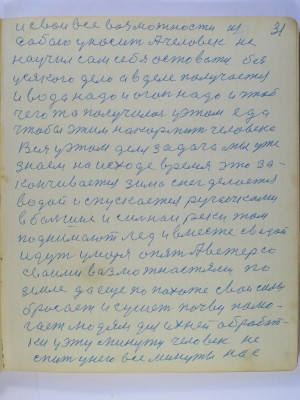 31
и свои все возможности из
собою уносит А человек не
научил сам себя оставатся без
усякого дело а в деле получается
и вода надо и огон надо и этой
чего та получился у этом еда
чтобы этим накормит человека
Вся у этом делу задача мы уже
знаем на исходе время это за-
канчивается зима снег делается
водой и спускается ручейками
в болшие и силнаи реки там
поднимают лед и вместе с водой
идут у моря опят А ветер со
своими вазможностями по
земле да еще по похоже свои силы
бросает и сушет почву помо-
гает людям для ихней обработ-
ки у эту минуту человек не
спит у него все минуты на с